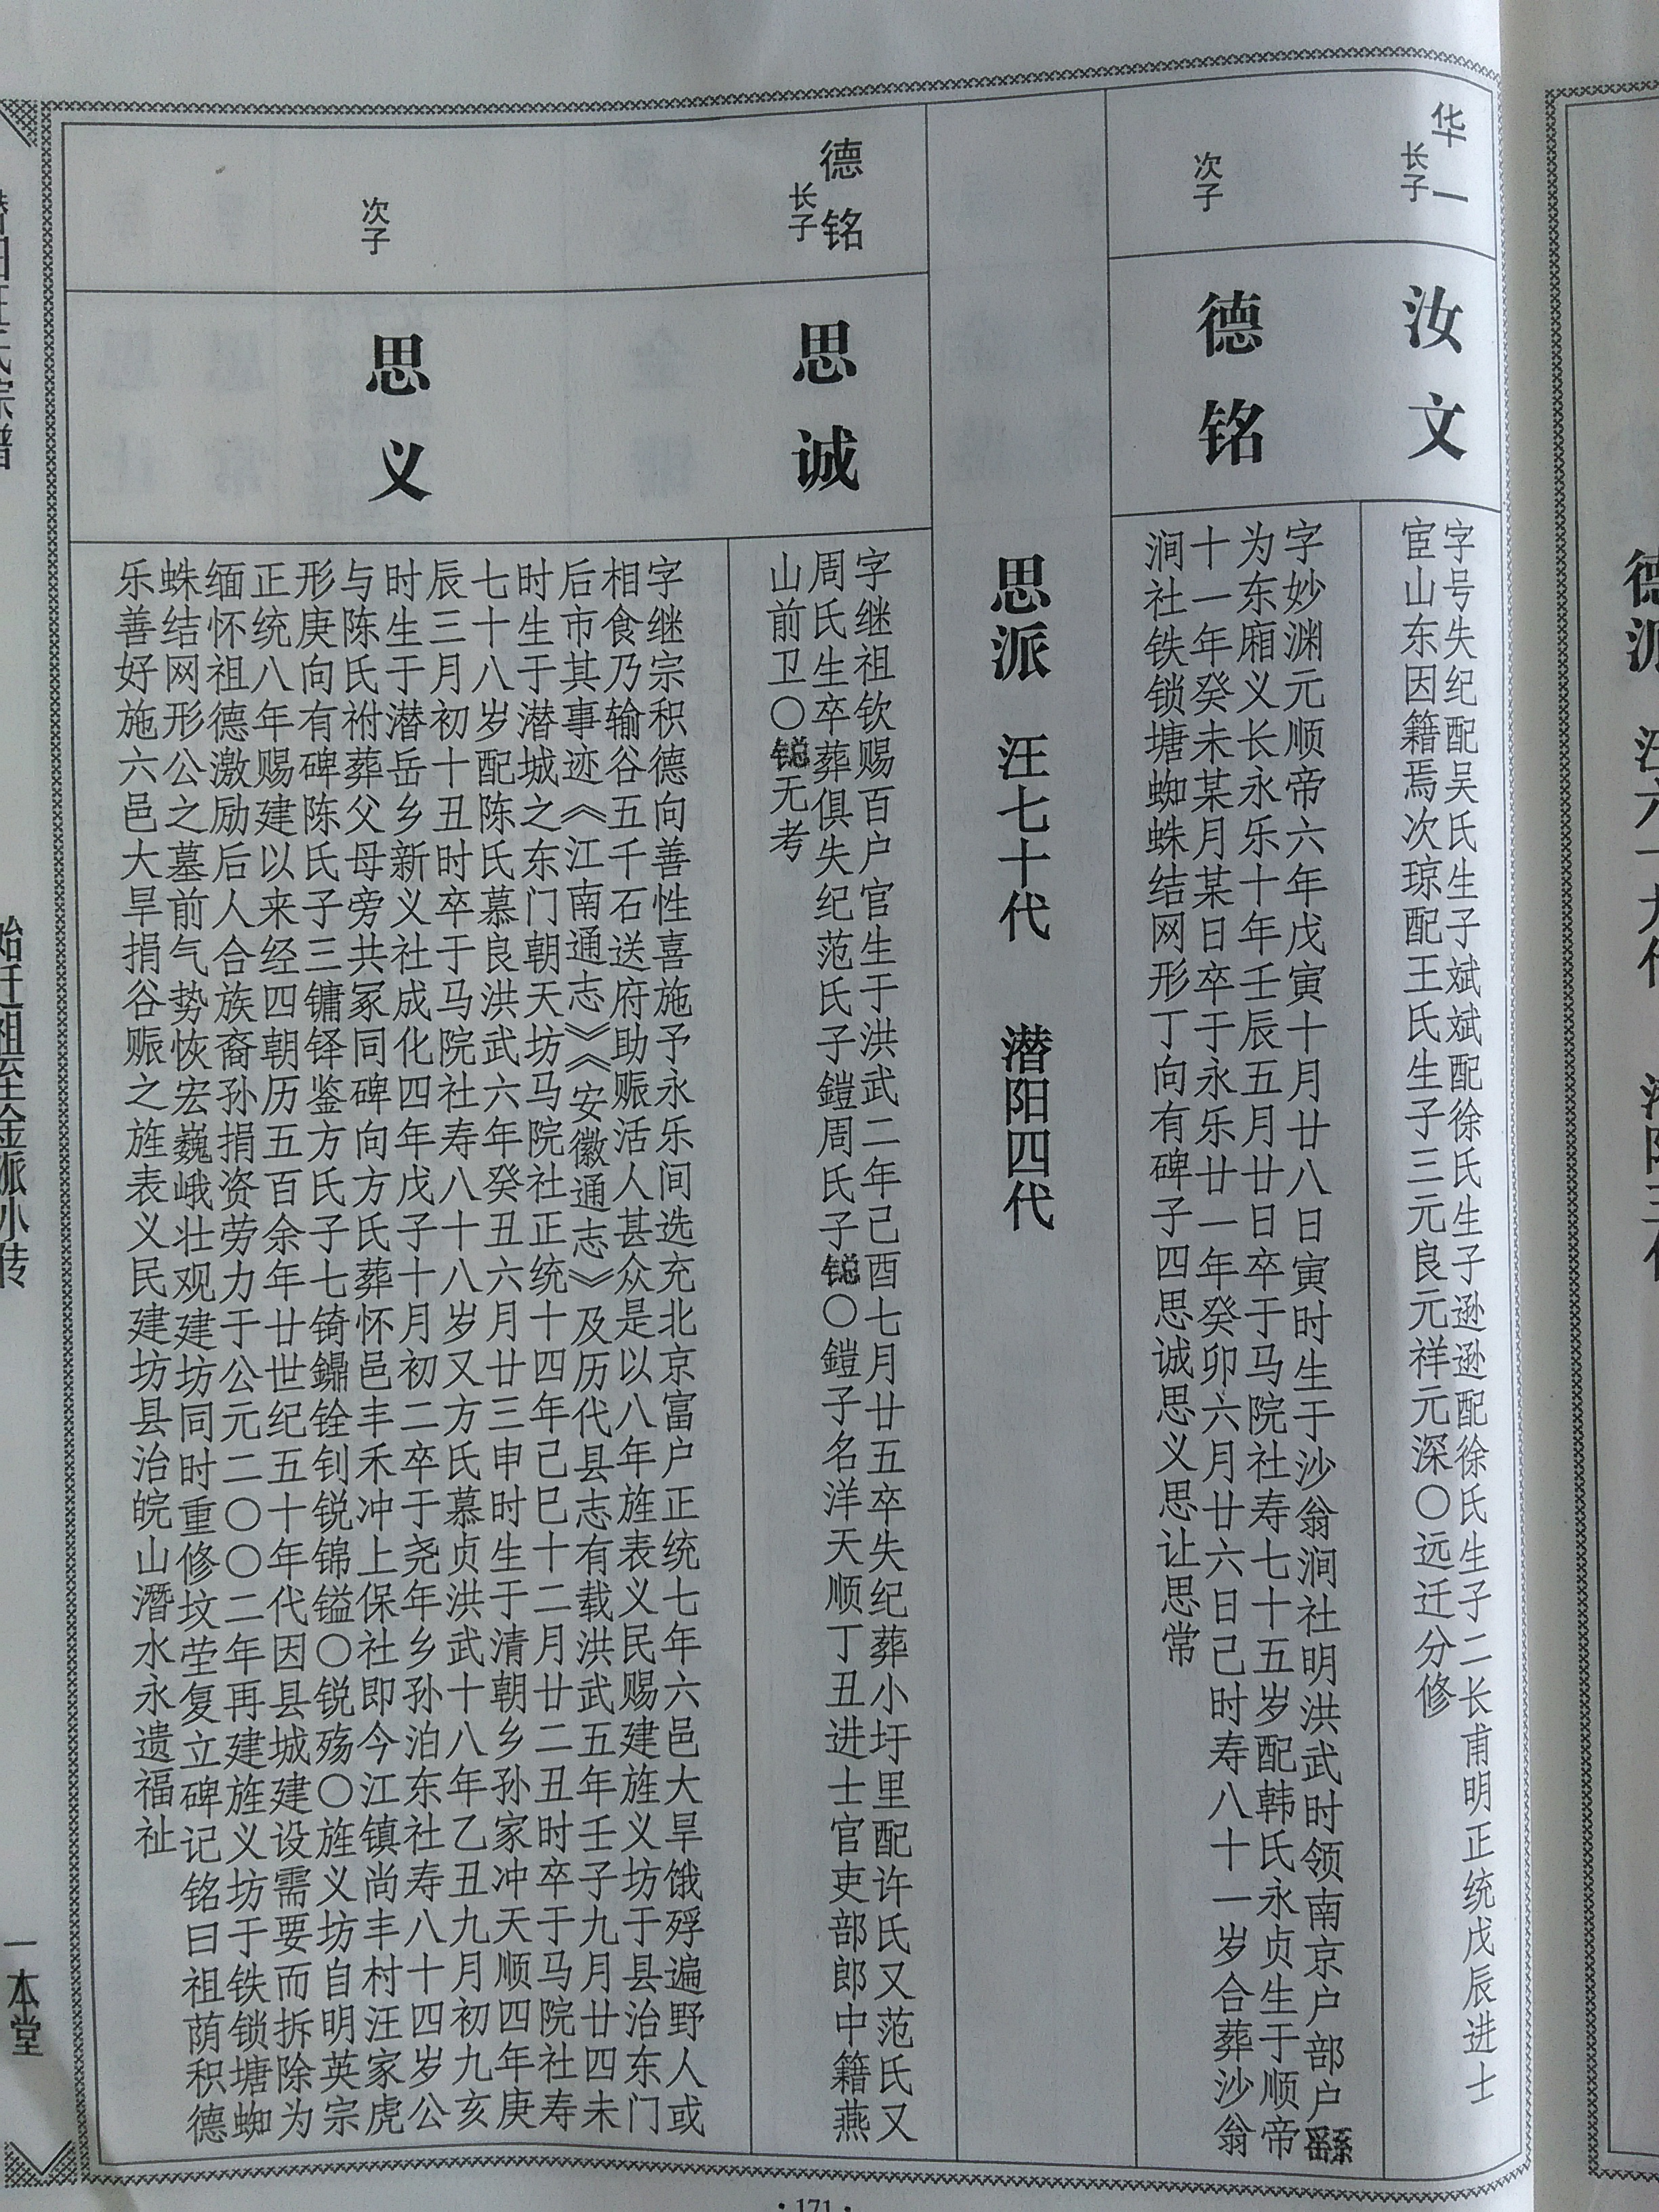 华一
长子
汝文
字号失纪配吴氏生子斌斌配徐氏生子逊逊配徐氏生子二长甫明正统戊辰进士
宦山东因籍焉次琼配王氏生子三元良元祥元深〇远迁分修
次子
德铭
字妙渊元顺帝六年戊寅十月廿八日寅时生于沙翁涧社明洪武时领南京户部户
为东厢义长永乐十年壬辰五月廿日卒于马院社寿七十五岁配韩氏永贞生于顺帝
十一年癸未某月某日卒于永乐廿一年癸卯六月廿六日己时寿八十一岁合葬沙翁
涧社铁锁塘蜘蛛结网形丁向有碑子四思诚思义思让思常
思派 汪七十代 潜阳四代
德铭
长子
思诚
字继祖钦赐百户官生于洪武二年己酉七月廿五卒失纪葬小圩里配许氏又范氏又
周氏生卒葬俱失纪范氏子鎧周氏子锐〇鎧子名洋天顺丁丑进士官吏部郎中籍燕
山前卫〇锐无考
次子
思义
字继宗积德向善性喜施予永乐间选充北京富户正统七年六邑大旱饿殍遍野人或
相食乃输谷五千石送府助赈活人甚众是以八年旌表义民赐建旌义坊于县治东门
后市其事迹《江南通志》《安徽通志》及历代县志有载洪武五年壬子九月廿四未
时生于潜城之东门朝天坊马院社正统十四年己巳十二月廿二丑时卒于马院社寿
七十八岁配陈氏慕良洪武六年癸丑六月廿三申时生于清朝乡孙家冲天顺四年庚
辰三月初十丑时卒于马院社寿八十八岁又方氏慕贞洪武十八年乙丑九月初九亥
时生于潜岳乡新义社成化四年戊子十月初二卒于尧年乡孙泊东社寿八十四岁公
与陈氏祔葬父母旁共冢同碑向方氏葬怀邑丰禾冲上保社即今江镇尚丰村汪家虎
形庚向有碑陈氏子三镛铎鉴方氏子七锜鐤铨钊锐锦镒〇锐殇〇旌义坊自明英宗
正统八年赐建以来经四朝历五百余年廿世纪五十年代因县城建设需要而拆除为
缅怀祖德激励后人合族裔孙捐资劳力于公元二〇〇二年再建旌义坊于铁锁塘蜘
蛛结网形公之墓前气势恢宏巍峨壮观建坊同时重修坟茔复立碑记铭曰祖荫积德
乐善好施六邑大旱捐谷赈之旌表义民建坊县治皖山潛水永遗福祉
始迁祖至金派小传
一本堂
·171·